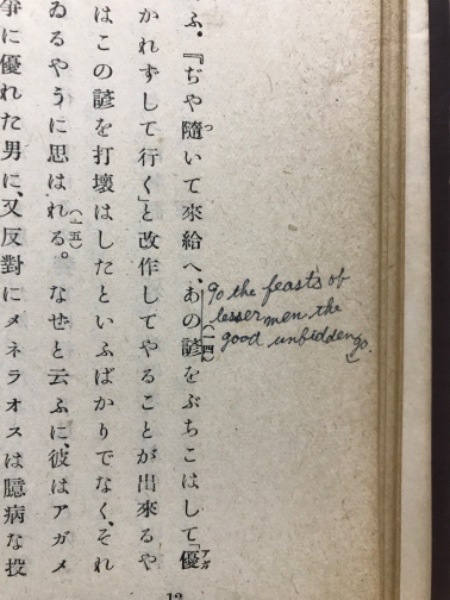 ふ。『ぢや隨いて來給へ、あの諺(一四)をぶちこはして「優
かれずして行く」と改作してやることが出來るや
はこの諺を打壞はしたといふばかりでなく、それ
ゐるやうに思はれる。(一五)なぜと云ふに、彼はアガメ
爭に優れた男に、又反對にメネラオスは臆病な投
To the feasts of
lesser men the
good unbidden go.